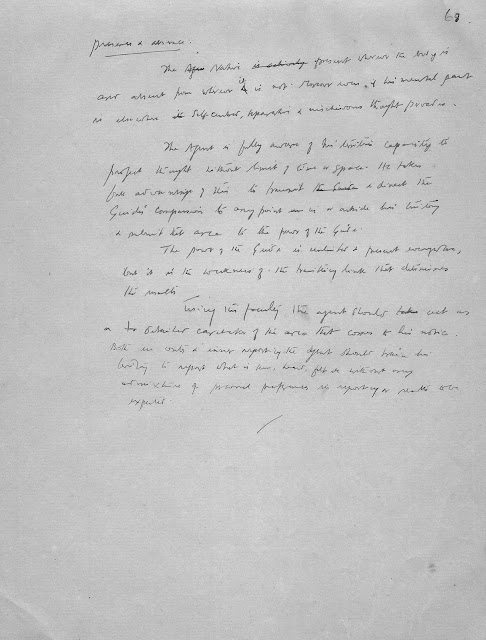 68
Presence & absence.
The Native is present wherever the body is
and absent from wherever it is not. Moreover & his mental part
is elsewhere Self centred, separation & mischievous thought
The Agent is fully aware of his limitless capacity to
project thought without limit of time or space. He takes
full advantage of this to transmit & direct the
Guide's compassion to any point in or outside his body
& submit that area to the power of the Guide.
The power of the Guide is unlimited & present everywhere,
but it is the weakness of the transmitting link that determines
the results
Using this faculty the agent should act as
a detailed of the area that comes to his notice.
Both in outer & inner reporting the Agent should train his
to report what is seen, heard, felt &c without any
admixture of personal preferences in reporting or results to be
expected